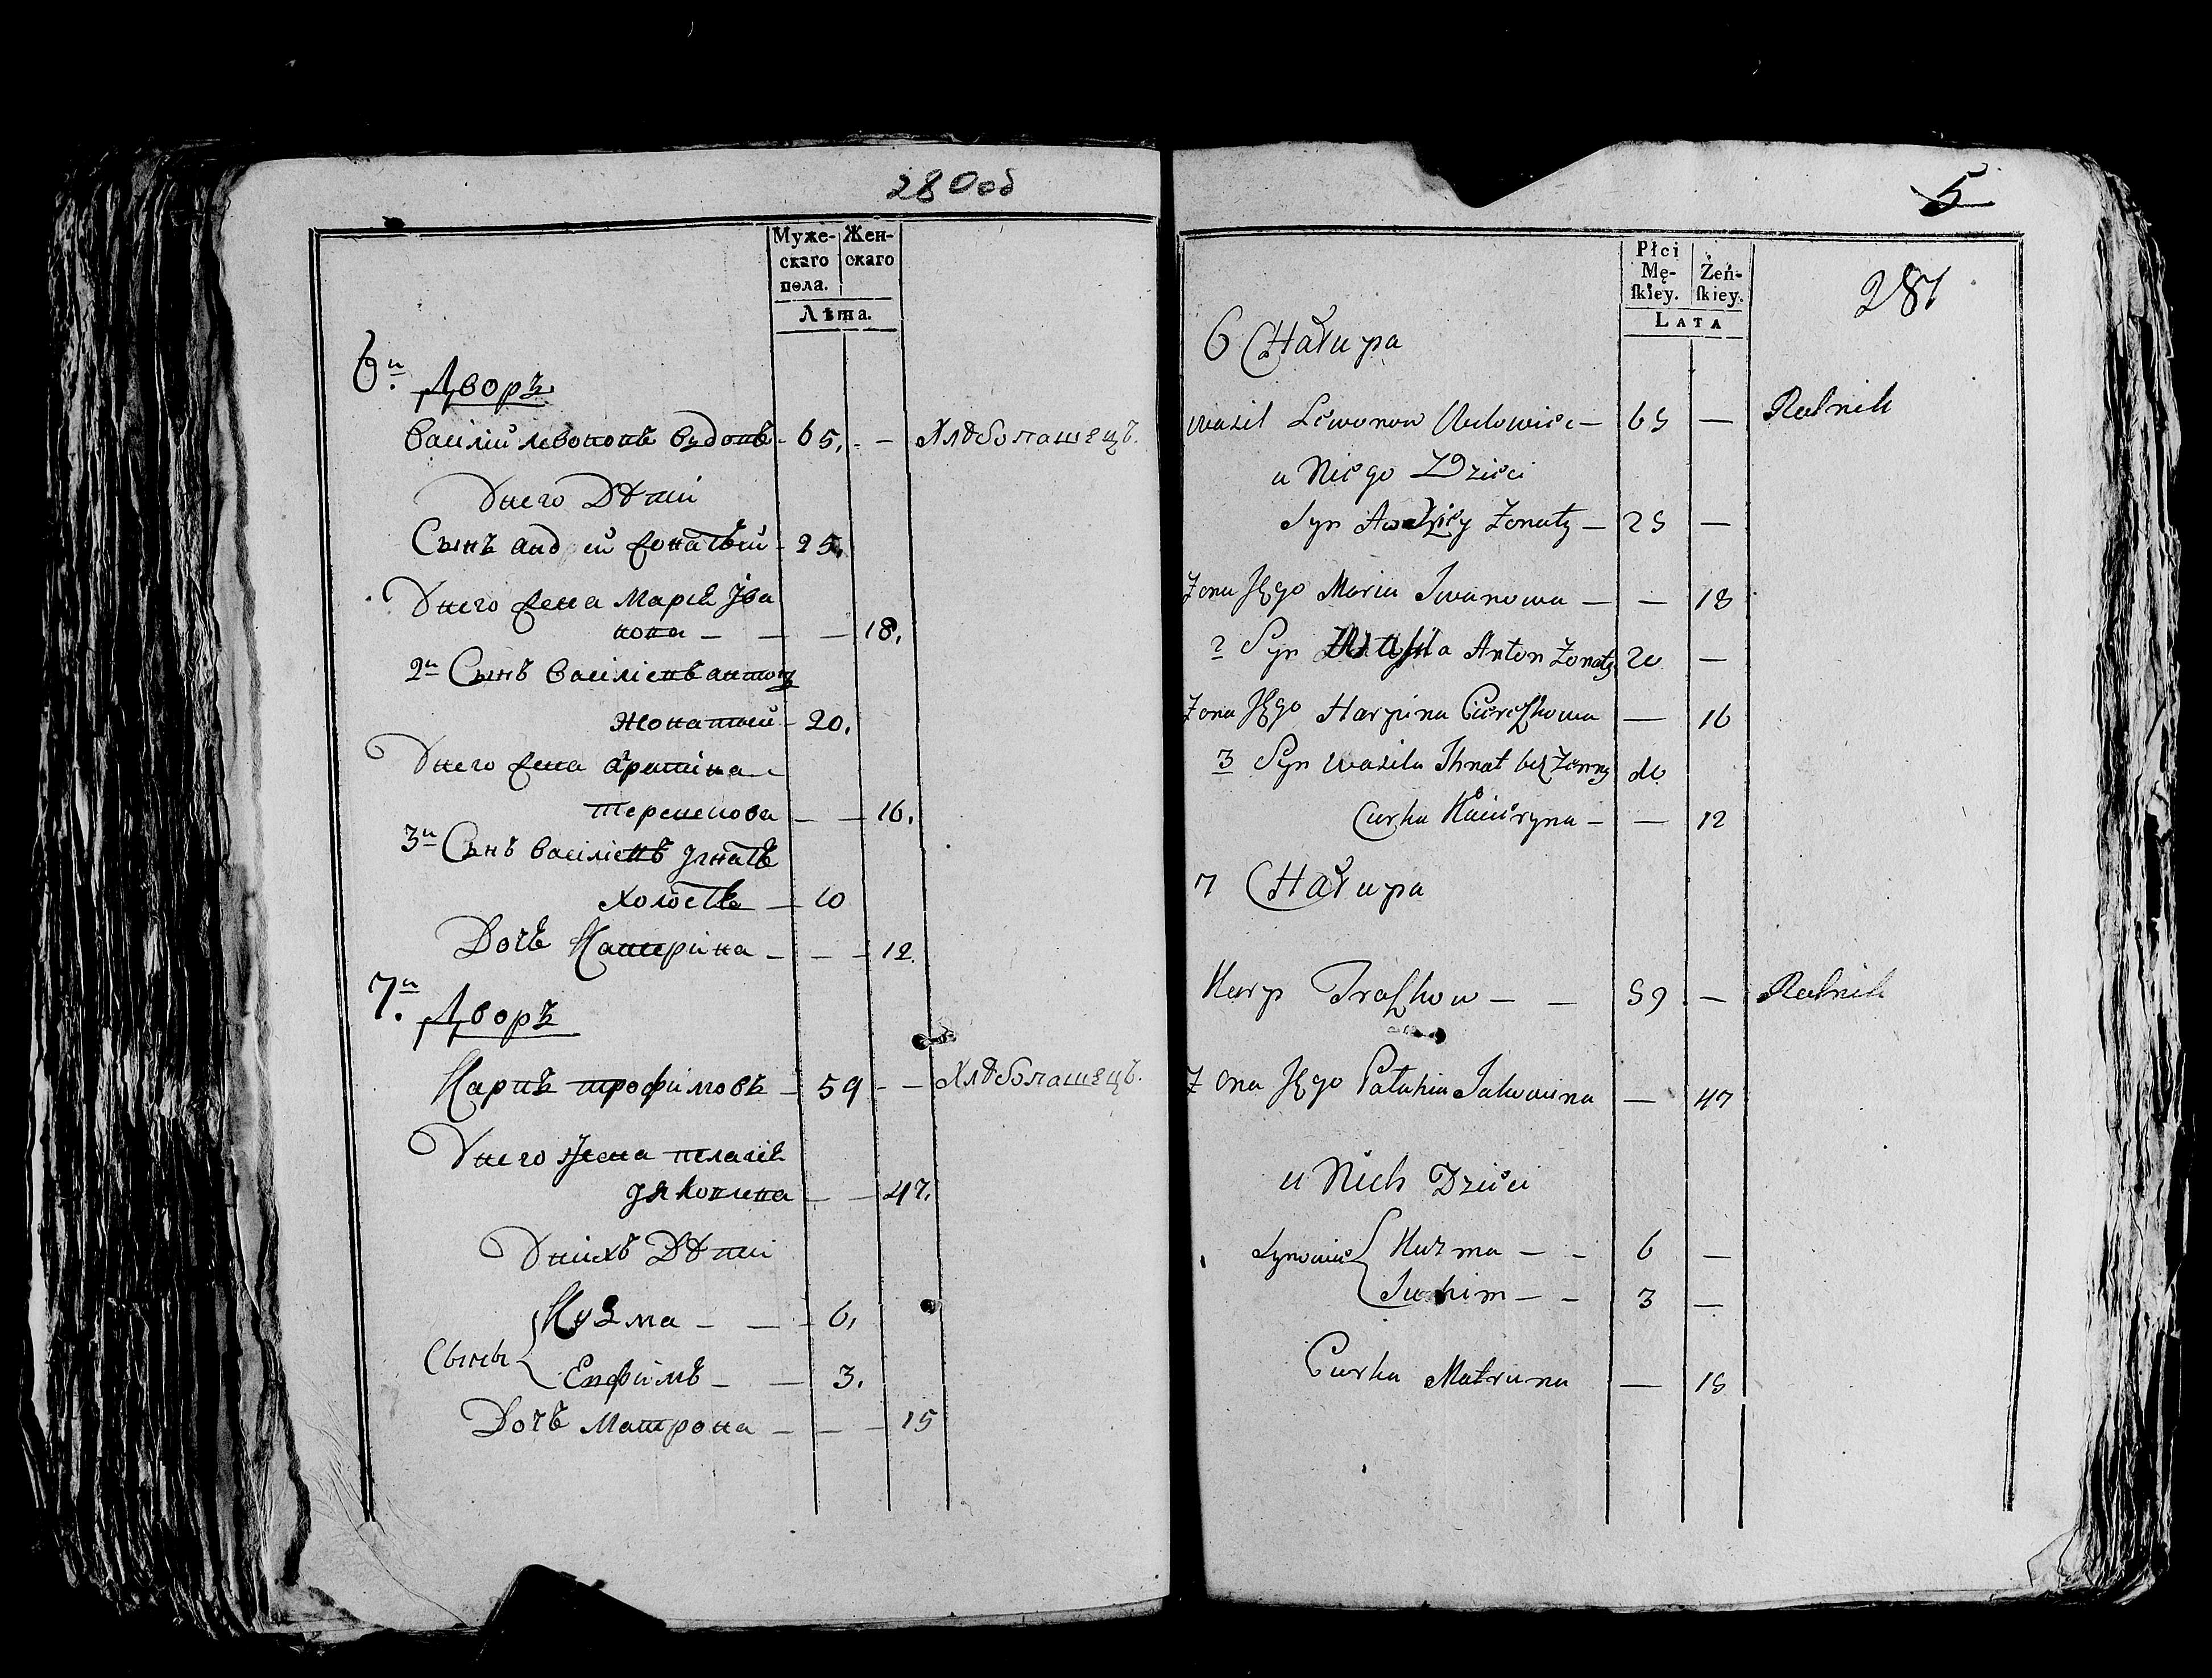 280 об
Муже-
скаго
пола.
Жен-
скаго
Лѣта.
6й Дворъ
Василій Левоновъ Вудовъ — 65. — Хлѣбопашецъ.
У него Дѣти
Сынъ Андрей Жонатый — 25.
У него Жена Марія Ива
нова — — — 18.
2й Сынъ Василіевъ Антонъ
Жонатый — 20.
У него Жена
Терешкова — — 16.
3й Сынъ Василіевъ Игнатъ
Холостъ — 10
Дочь Катерина — — — 12.
7й Дворъ
Карпъ Трофимовъ — 59 — — Хлѣбопашецъ.
У него Жена Пелагія
Яковлева — — 47.
У нихъ Дѣти
Сыны { Кузма — — 6.
Епфимъ — — 3.
Дочь Матрона — — — 15
5
281
Płci
Mę-
ſkiey.
Żeń-
ſkiey.
LATA
6 Chałupa
Wasil Lewonow — 65 — Rolnik
u Niego Dzieci
Syn Andrzey Żonaty — 25 —
Żona Jego Maria Iwanowa — — 18
2 Syn Wasila Anton Żonaty 20 —
Żona Jego Harpina — 16
3 Syn Wasila Ihnat bez Żenny 10
Curka Kacieryna — — 12
7 Chałupa
Karp Traszkow — — 59 — Rolnik
Żona Jego Połahia Jakowina — 47
u Nich Dzieci
Synowie { Kuzma — — 6 —
Juchim — — 3 —
Curka Matruna — 15